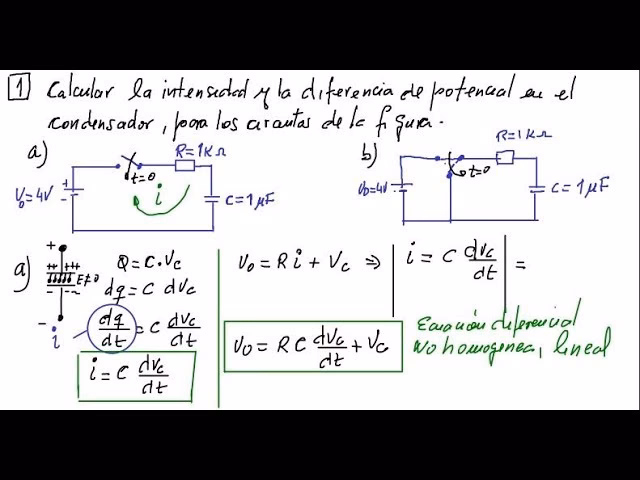 1 Calcular la intensidad y la diferencia de potencial en el
condensador, para los circuitos de la figura.
a)
R=1KΩ
t=0
V₀=4V
+
-
i
C=1μF
b)
R=1KΩ
t=0
V₀=4V
C=1μF
a)
+
+++ +++
E≠0
- - - -
-
i
Q = C·Vc
dq = C dVc
dq/dt = C dVc/dt
i = C dVc/dt
V₀ = R i + Vc ⇒ | i = C dVc/dt | =
V₀ = R C dVc/dt + Vc
Ecuación diferencial
No homogenea, lineal